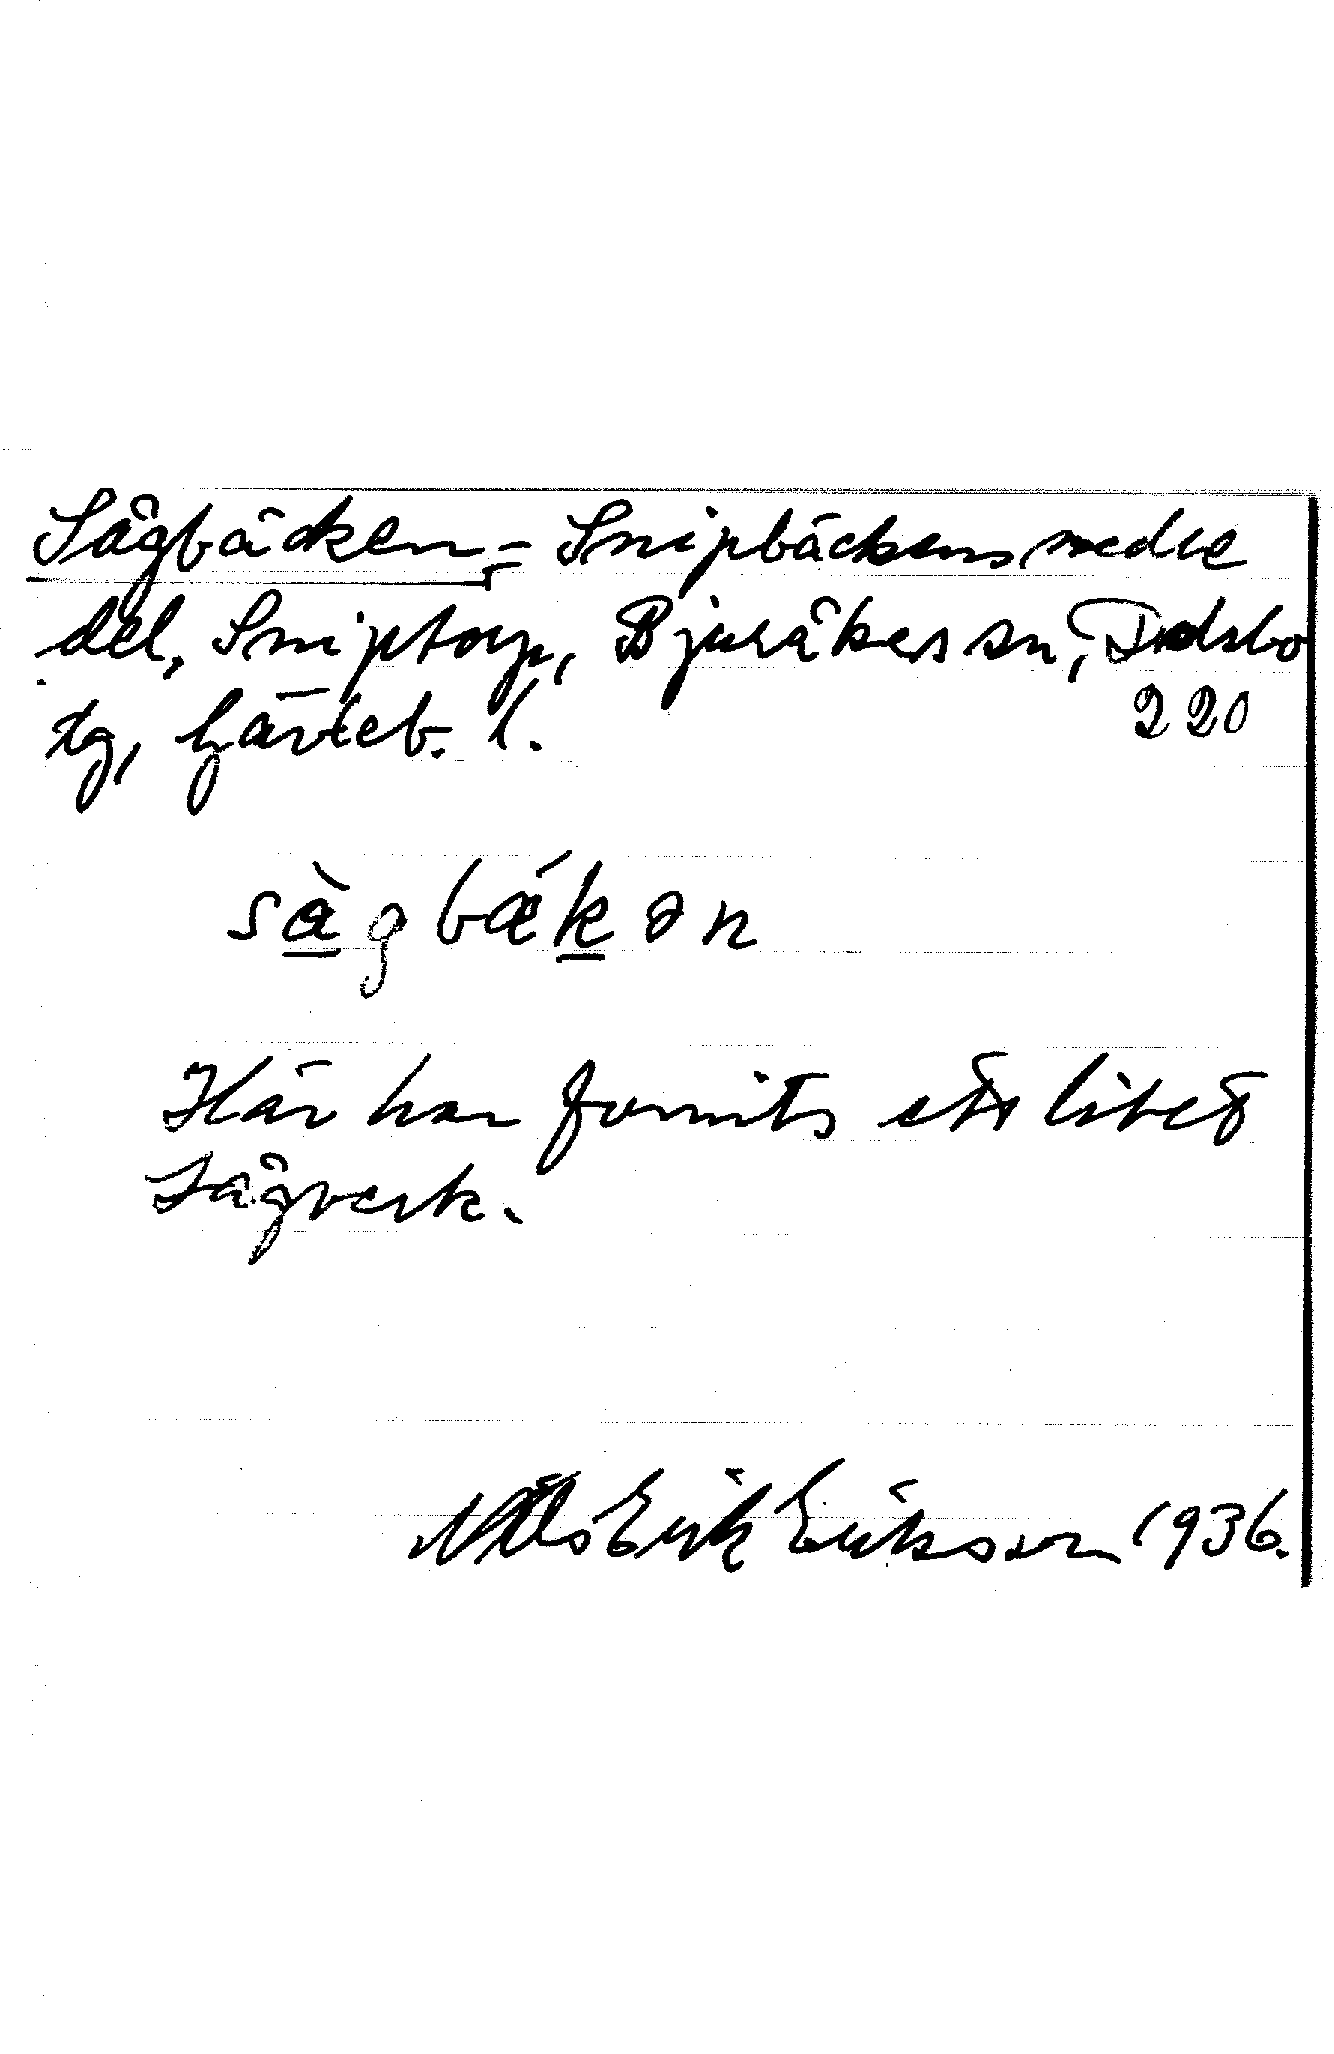 Sågbäcken, = Snipbäckens nedre
del, Sniptorp, Bjuråkers sn, Delsbo
tg, Gävleb. l.
220
sàgbǽkən
Här har funnits ett litet
sågverk.
Nils Erik Eriksson 1936.